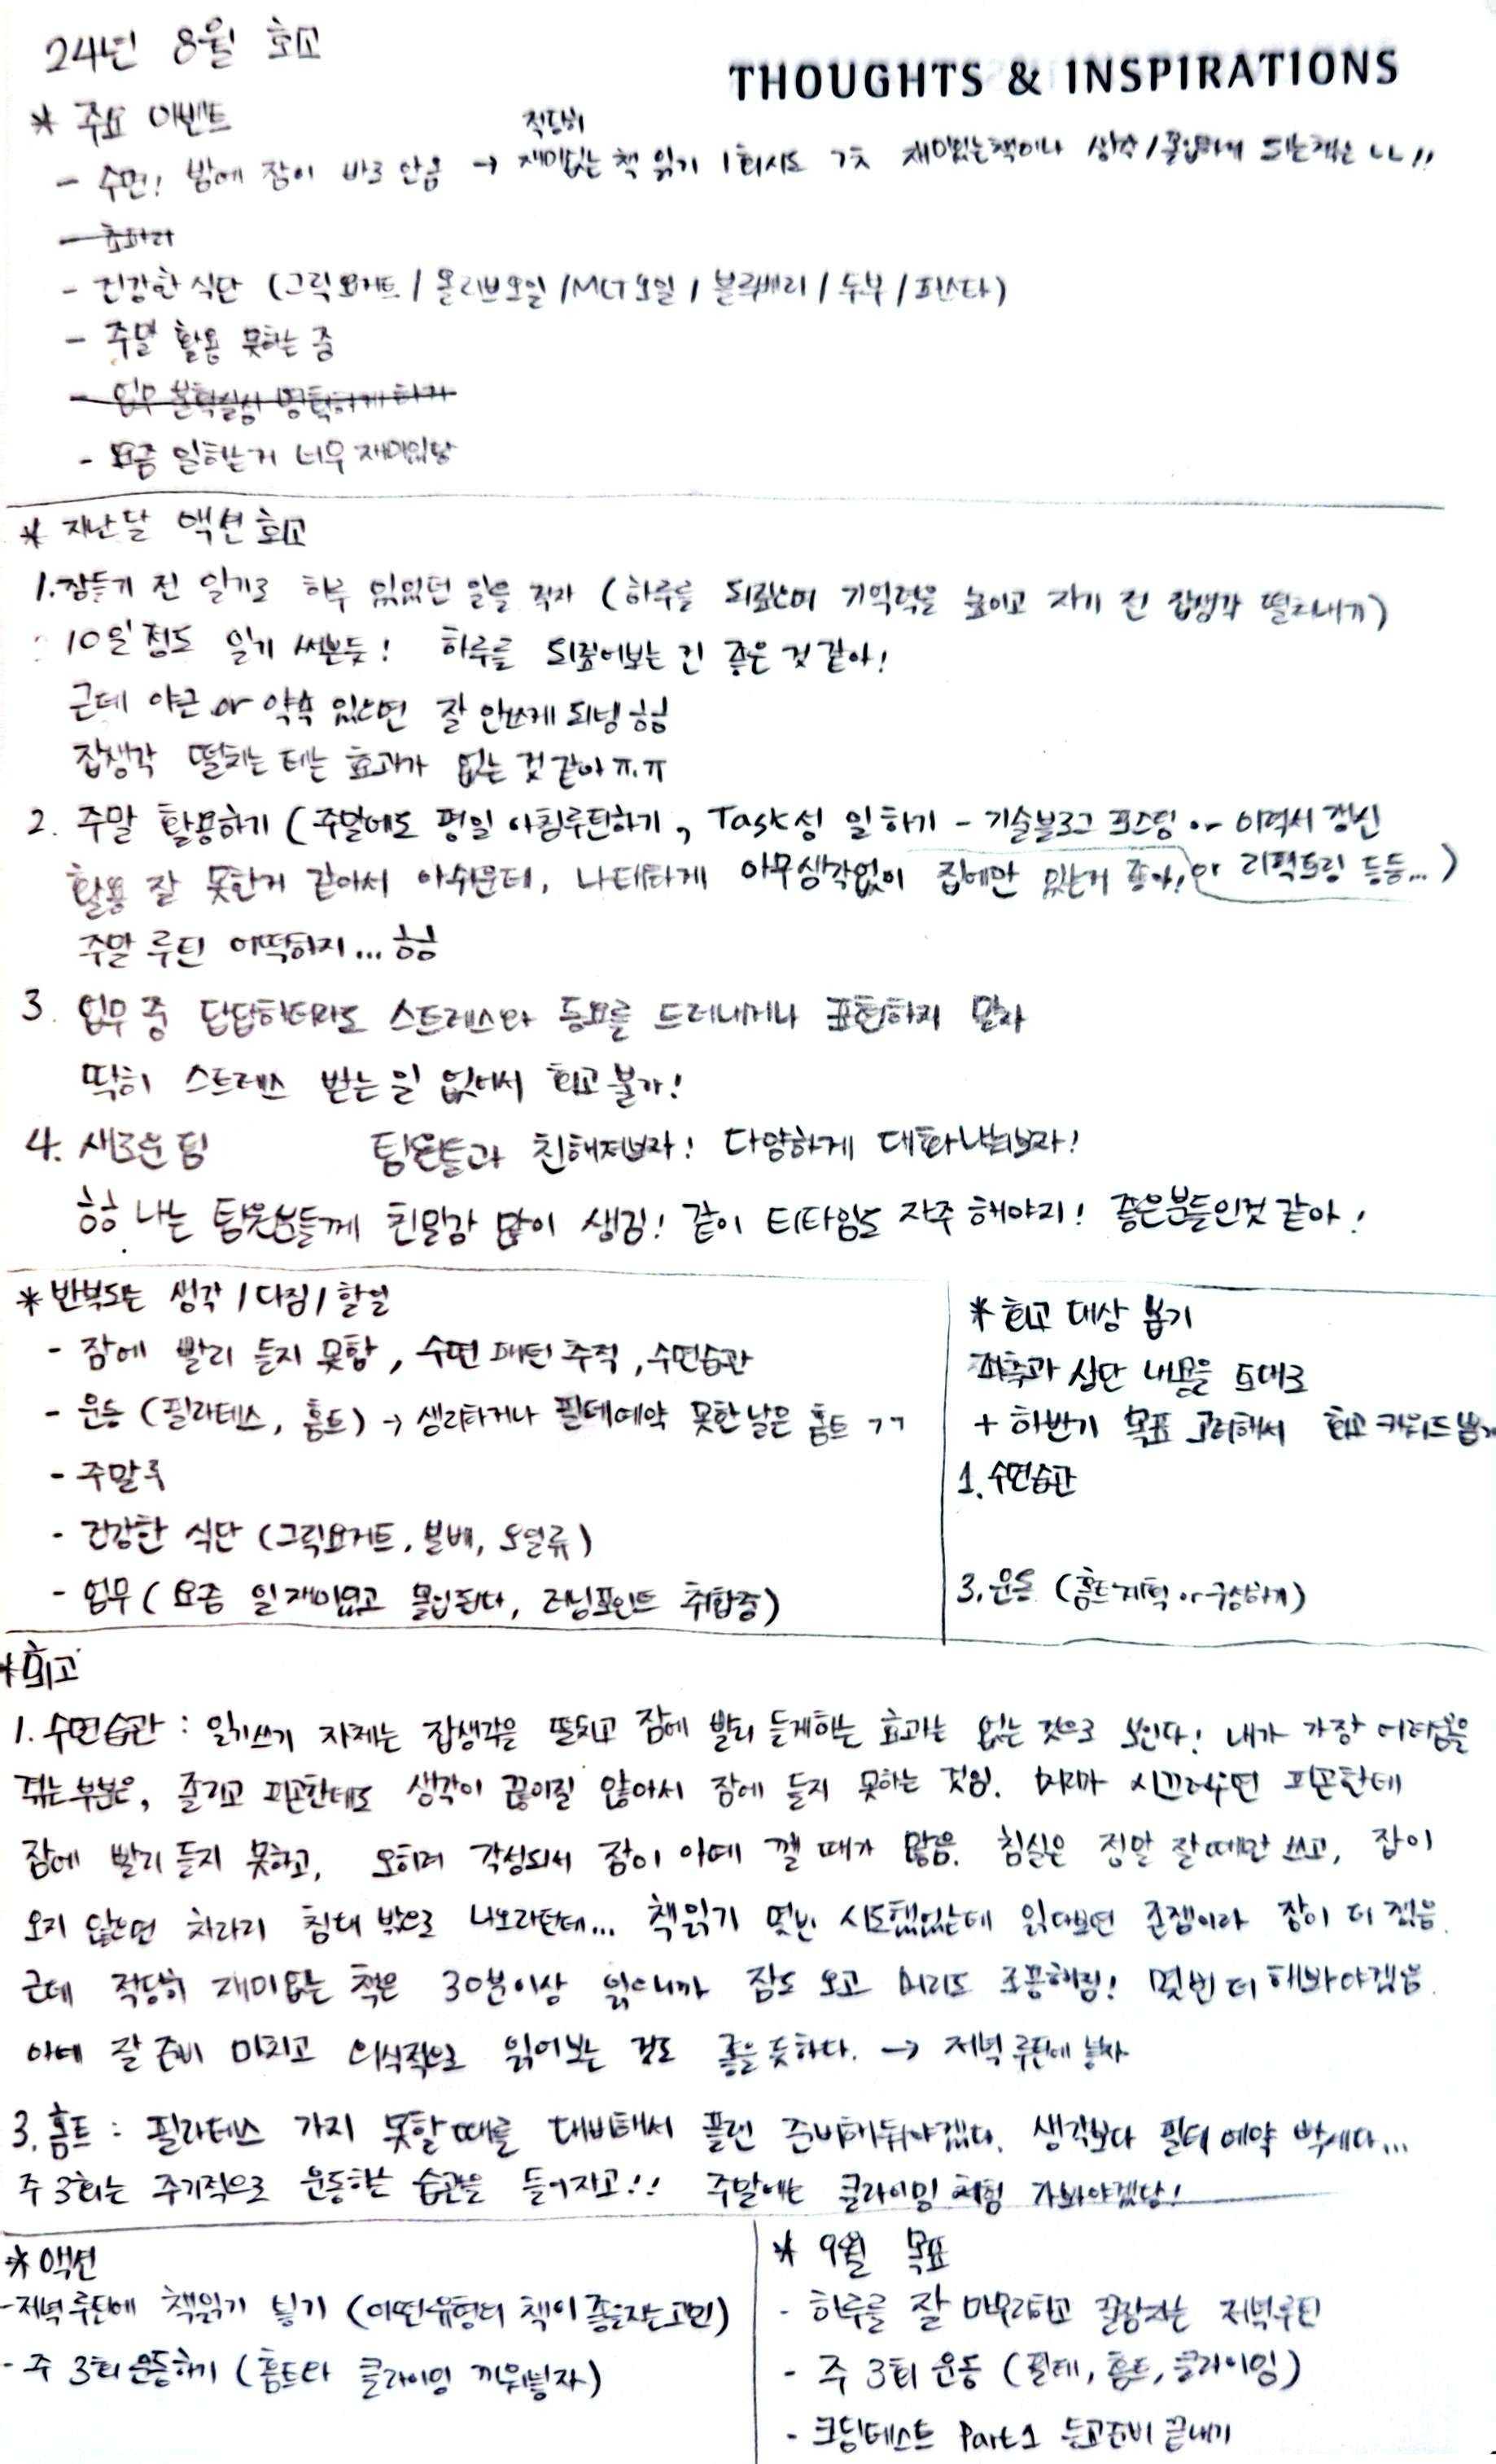 24년 8월 회고
THOUGHTS & INSPIRATIONS
* 주요 이벤트
적당히
- 수면! 밤에 잠이 바로 안옴 → 재미있는 책 읽기 1회시도 ㄱㅊ 재미있는책이나 상상/몰입하게 되는책은 ㄴㄴ!!
- 건강한 식단 (그릭요거트 / 올리브오일 / MCT오일 / 블루베리 / 두부 / 파스타)
- 주말 활용 못하는 중
- 업무 불확실성 명확하게 하기
- 요즘 일하는거 너무 재미있당
* 지난달 액션 회고
1. 잠들기 전 일기로 하루 있었던 일을 적자 (하루를 되짚으며 기억력을 높이고 자기 전 잡생각 떨쳐내ㅠ)
: 10일 정도 일기 써본듯! 하루를 되짚어보는 건 좋은 것 같아!
근데 야근 or 약속 있으면 잘 안쓰게 되넹 헝헝
잡생각 떨치는 데는 효과가 없는 것 같아 ㅠ.ㅠ
2. 주말 활용하기 (주말에도 평일 아침루틴하기, Task성 일 하기 - 기술블로그 포스팅 or 이력서 갱신
or 리팩토링 등등...)
활용 잘 못한거 같아서 아쉬운데, 나태하게 아무생각없이 집에만 있는거 좋아!
주말 루틴 어떡하지... 헝헝
3. 업무 중 답답하더라도 스트레스와 동요를 드러내거나 표현하지 말자
딱히 스트레스 받는 일 없어서 회고 불가!
4. 새로운 팀 팀원들과 친해져보자! 다양하게 대화나눠보자!
헝헝 나는 팀원분들께 친밀감 많이 생김! 같이 티타임도 자주 해야지! 좋은분들인것 같아!
* 반복되는 생각 / 다짐 / 할일
- 잠에 빨리 들지 못함, 수면 패턴 추적, 수면습관
- 운동 (필라테스, 홈트) → 생리하거나 필테예약 못한날은 홈트 ㄱㄱ
- 주말루
- 건강한 식단 (그릭요거트, 블베, 오일류)
- 업무 (요즘 일 재미있고 몰입된다, 러닝포인트 취합중)
* 회고 대상 뽑기
좌측과 상단 내용을 토대로
+ 하반기 목표 고려해서 회고 키워드 뽑기
1. 수면습관
3. 운동 (홈트계획 or 구상하기)
* 회고
1. 수면습관 : 일기쓰기 자체는 잡생각을 떨치고 잠에 빨리 들게하는 효과는 없는 것으로 보인다! 내가 가장 어려움을
겪는부분은, 졸리고 피곤한데도 생각이 끊이질 않아서 잠에 들지 못하는 것임. 머리가 시끄러우면 피곤한데
잠에 빨리 들지 못하고, 오히려 각성되서 잠이 아예 깰 때가 많음. 침실은 정말 잘때만 쓰고, 잠이
오지 않으면 차라리 침대 밖으로 나오라던데... 책읽기 몇번 시도했었는데 읽다보면 존잼이라 잠이 더 깼음.
근데 적당히 재미있는 책은 30분이상 읽으니까 잠도 오고 머리도 조용해짐! 몇번 더 해봐야겠음.
아예 잘 준비 마치고 의식적으로 읽어보는 것도 좋을 듯하다. → 저녁 루틴에 넣자
3. 홈트 : 필라테스 가지 못할 때를 대비해서 플랜 준비해둬야겠다. 생각보다 필테 예약 빡세다...
주 3회는 주기적으로 운동하는 습관을 들이자고!! 주말에는 클라이밍 체험 가봐야겠당!
* 액션
- 저녁 루틴에 책읽기 넣기 (어떤유형의 책이 좋을지는고민)
- 주 3회 운동하기 (홈트와 클라이밍 끼워넣자)
* 9월 목표
- 하루를 잘 마무리하고 꿀잠자는 저녁루틴
- 주 3회 운동 (필테, 홈트, 클라이밍)
- 코딩테스트 Part1 듣고준비 끝내기